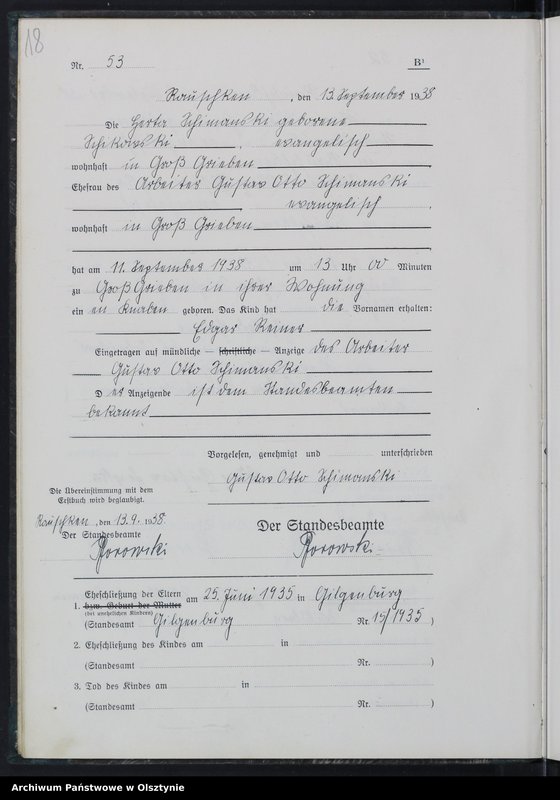 18
Nr. 53 B¹
Rauschken, den 13. September 1938
Die Herta Schimanski geborene
Schikowski, evangelisch
wohnhaft in Groß Grieben
Ehefrau des Arbeiter Gustav Otto Schimanski
evangelisch.
wohnhaft in Groß Grieben
hat am 11. September 1938 um 13 Uhr 00 Minuten
zu Groß Grieben in ihrer Wohnung
ein en Knaben geboren. Das Kind hat die Vornamen erhalten:
Edgar Reiner
Eingetragen auf mündliche — schriftliche — Anzeige des Arbeiter
Gustav Otto Schimanski
D er Anzeigende ist dem Standesbeamten
bekannt
Vorgelesen, genehmigt und unterschrieben
Gustav Otto Schimanski
Die Übereinstimmung mit dem
Erstbuch wird beglaubigt.
Rauschken, den 13.9.1938.
Der Standesbeamte
Der Standesbeamte
Eheschließung der Eltern am 25. Juni 1935 in Gilgenburg
1. bzw. Geburt der Mutter
(bei unehelichen Kindern)
(Standesamt Gilgenburg Nr. 15/1935)
2. Eheschließung des Kindes am in
(Standesamt Nr. )
3. Tod des Kindes am in
(Standesamt Nr. )
Archiwum Państwowe w Olsztynie